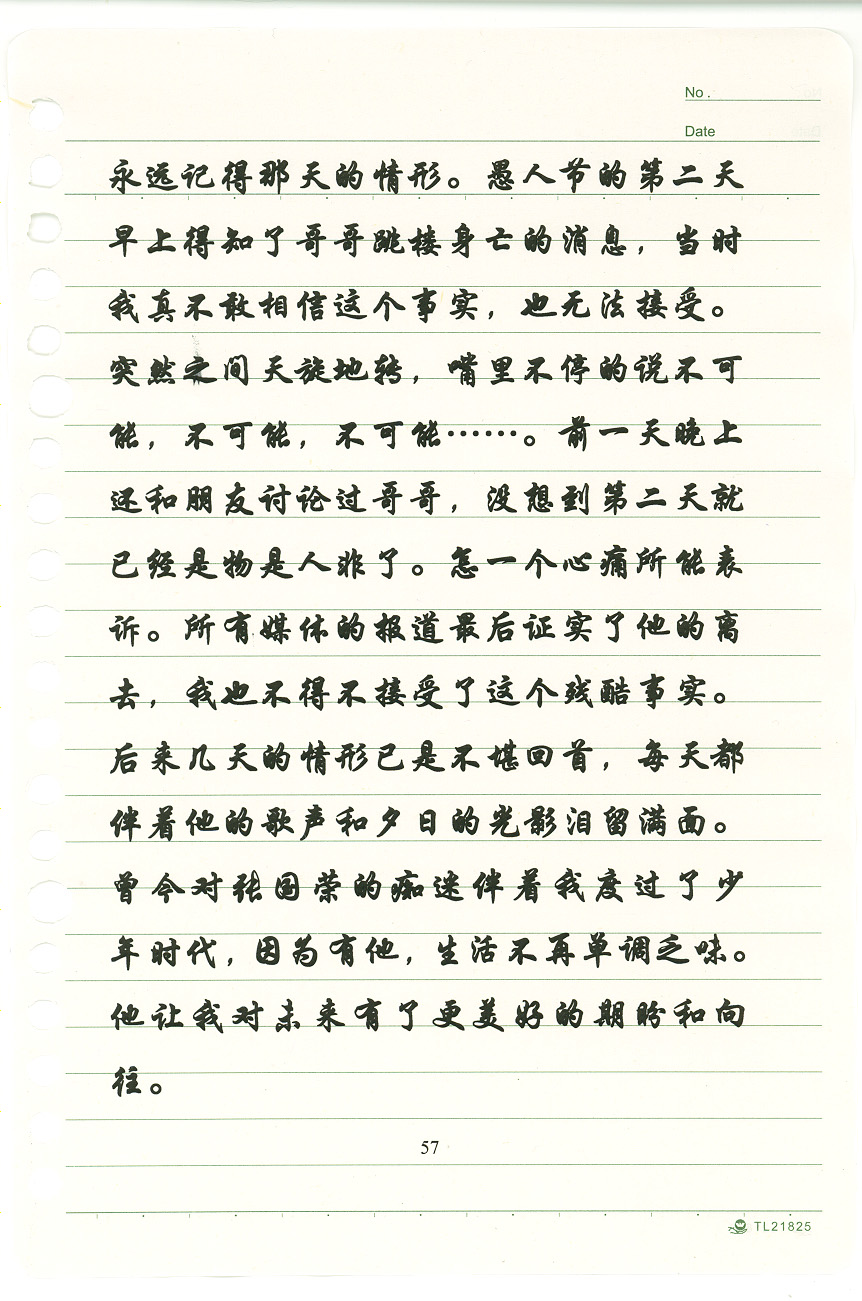 No .
Date
永远记得那天的情形。愚人节的第二天
早上得知了哥哥跳楼身亡的消息，当时
我真不敢相信这个事实，也无法接受。
突然之间天旋地转，嘴里不停的说不可
能，不可能，不可能……。前一天晚上
还和朋友讨论过哥哥，没想到第二天就
已经是物是人非了。怎一个心痛所能表
诉。所有媒体的报道最后证实了他的离
去，我也不得不接受了这个残酷事实。
后来几天的情形已是不堪回首，每天都
伴着他的歌声和夕日的光影泪留满面。
曾今对张国荣的痴迷伴着我度过了少
年时代，因为有他，生活不再单调乏味。
他让我对未来有了更美好的期盼和向
往。
57
TL21825